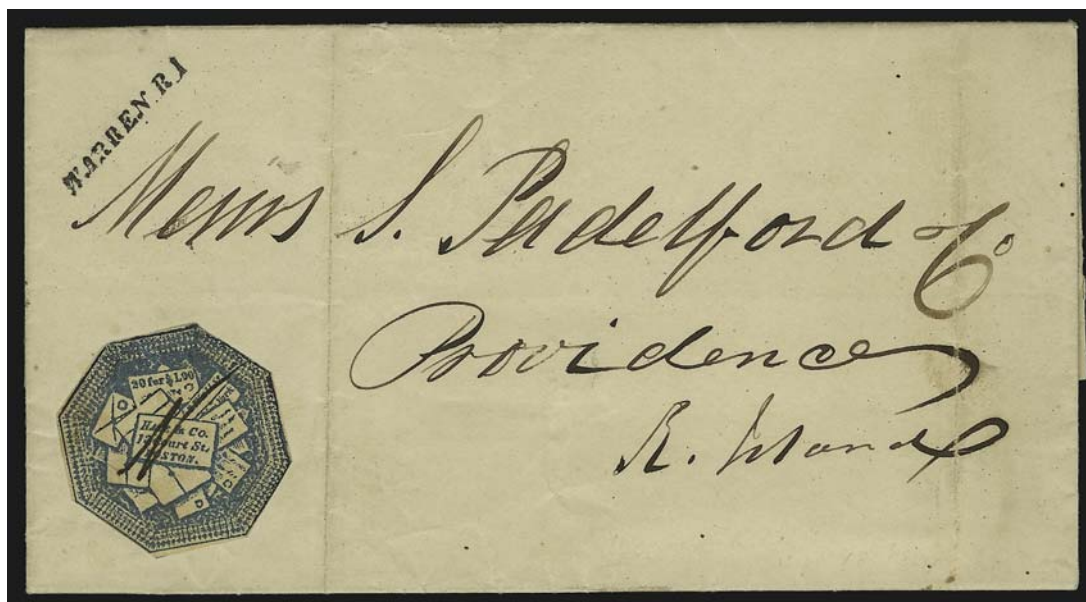 WARREN R I
Messrs S. Padelford & Co.
Providence
R. Island
20 for $1.00
& Co.
Court St.
BOSTON.